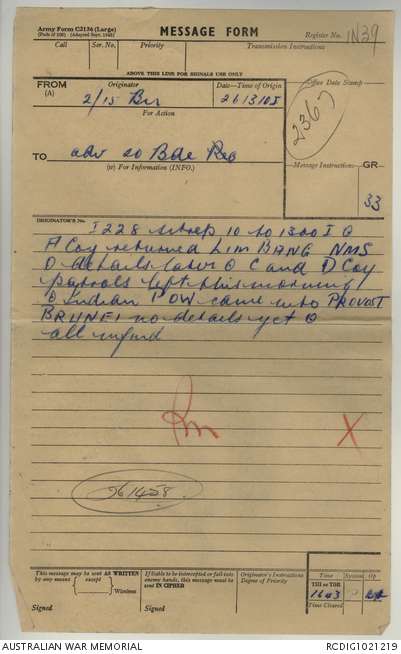 Army Form C2136 (Large)
(Pads of 100) (Adapted Sept. 1942)
MESSAGE FORM
Register No. IN39
Call Ser. No. Priority Transmission Instructions
ABOVE THIS LINE FOR SIGNALS USE ONLY
FROM
(A)
Originator
Date—Time of Origin
Office Date Stamp
2/15 Bn
261310I
2367
For Action
TO
adv 20 Bde Rep
(W) For Information (INFO.)
Message Instructions GR
33
ORIGINATOR'S No.
I228 sitrep 10 to 1300I O
A Coy returned LIMBANG NMS
O details later O C and D Coy
patrols left this morning
O Indian POW came into PROVOST
BRUNEI no details yet O
all infmd
X
This message may be sent AS WRITTEN
by any means except Wireless
If liable to be intercepted or fall into
enemy hands, this message must be
sent IN CIPHER
Originator's Instructions
Degree of Priority
Time System Op
THI or TOR
1643
Time Cleared
Signed
Signed
AUSTRALIAN WAR MEMORIAL
RCDIG1021219